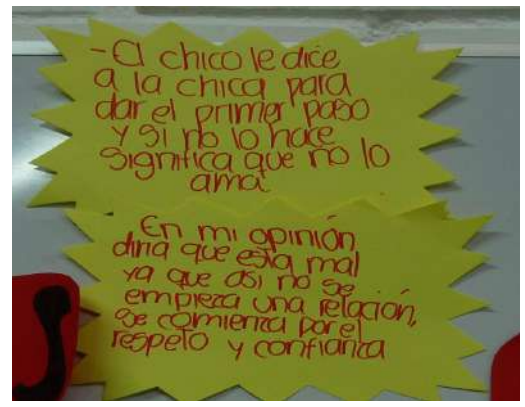 - El chico le dice
a la chica para
dar el primer paso
y si no lo hace
significa que no lo
ama.
En mi opinión
diría que esta mal
ya que así no se
empieza una relación,
se comienza por el
respeto y confianza